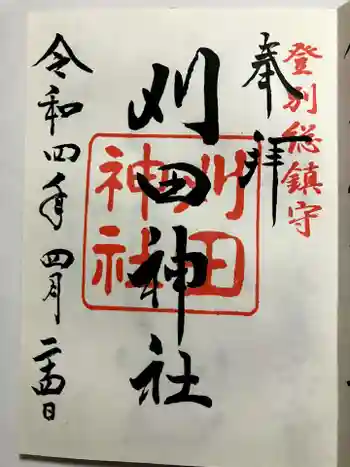 登別総鎮守
奉拝
刈田神社
刈田
神社
令和四年四月二十四日